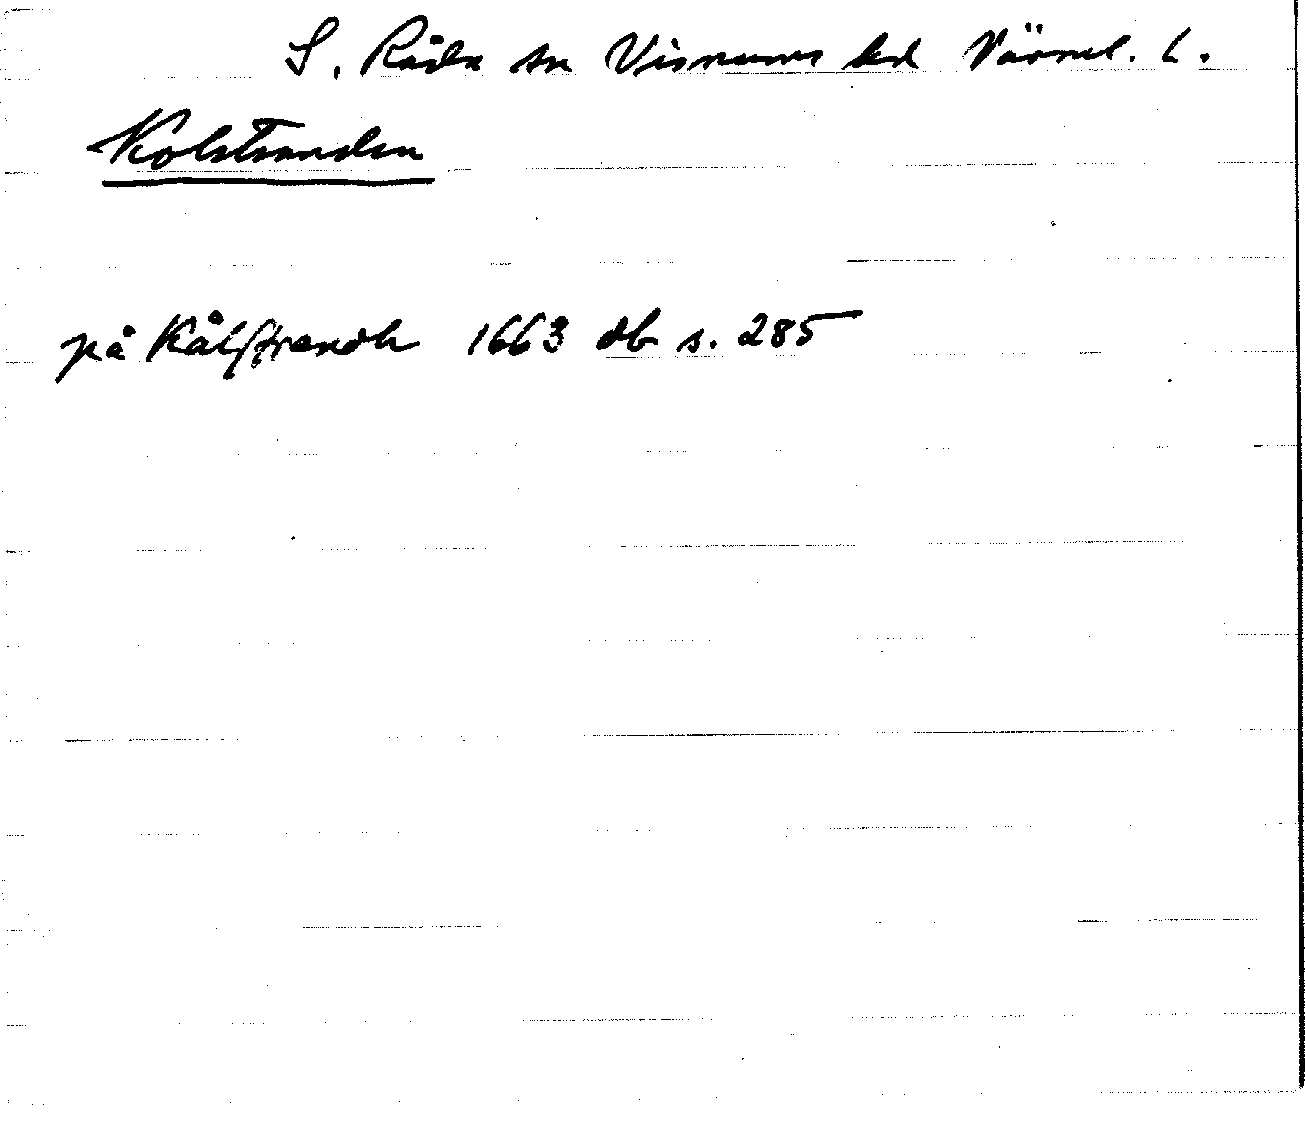 S. Råda sn Visnums hd Värml. l.
Kolstranden
på Kålstrandh 1663 db s. 285